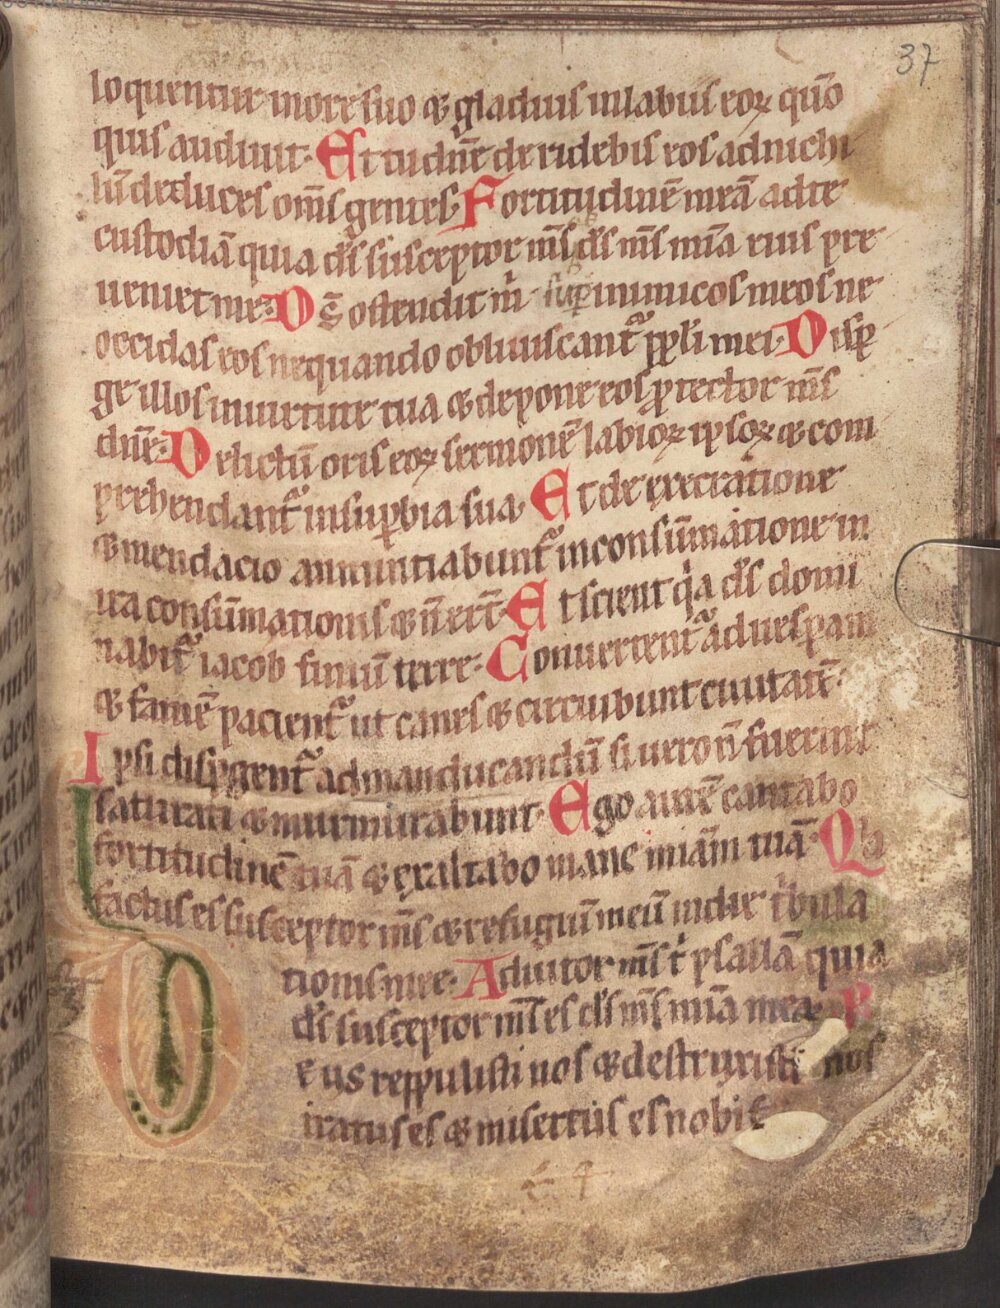 37
loquentur inore suo & gladius inlabiis eoꝝ qm̄o
quis audiuit. Et tu dn̄e deridebis eos adnichi
lū deduces om̄s gentes. Fortitudinē meā adte
custodiā quia d̄s susceptor m̄s d̄s m̄s mīa eius pre
ueniet me. D s̄ ostendit m̄ sup inimicos meos ne
occidas eos nequando obliuiscant᷑ ppl̄i mei. Disꝑ
ge illos inuirtute tua & depone eos ꝓtector m̄s
dn̄e. Delictū oris eoꝝ sermonē labioꝝ ipsoꝝ & com
prehendant᷑ insuꝑbia sua. Et de execratione
& mendacio annuntiabunt᷑ inconsūmatione in
ira consūmationis & n̄ ert̄. Et scient q̇a d̄s domi
nabit᷑ iacob finiū terre. Conuertent᷑ aduesꝑam
& famē pacient᷑ ut canes & circuibunt ciuitatē.
Ipsi dispgent᷑ admanducandū si uero n̄ fuerint
saturati & murmurabunt. Ego autē cantabo
fortitudinē tuā & exaltabo mane miām tuā. Qa
factus es susceptor m̄s & refugiū meū indie t̓bula
tionis mee. Adiutor m̄s t̓ psallā quia
d̄s susceptor m̄s es d̄s m̄s mīa mea
D eus reppulisti nos & destruxisti nos
iratus es & misertus es nobis